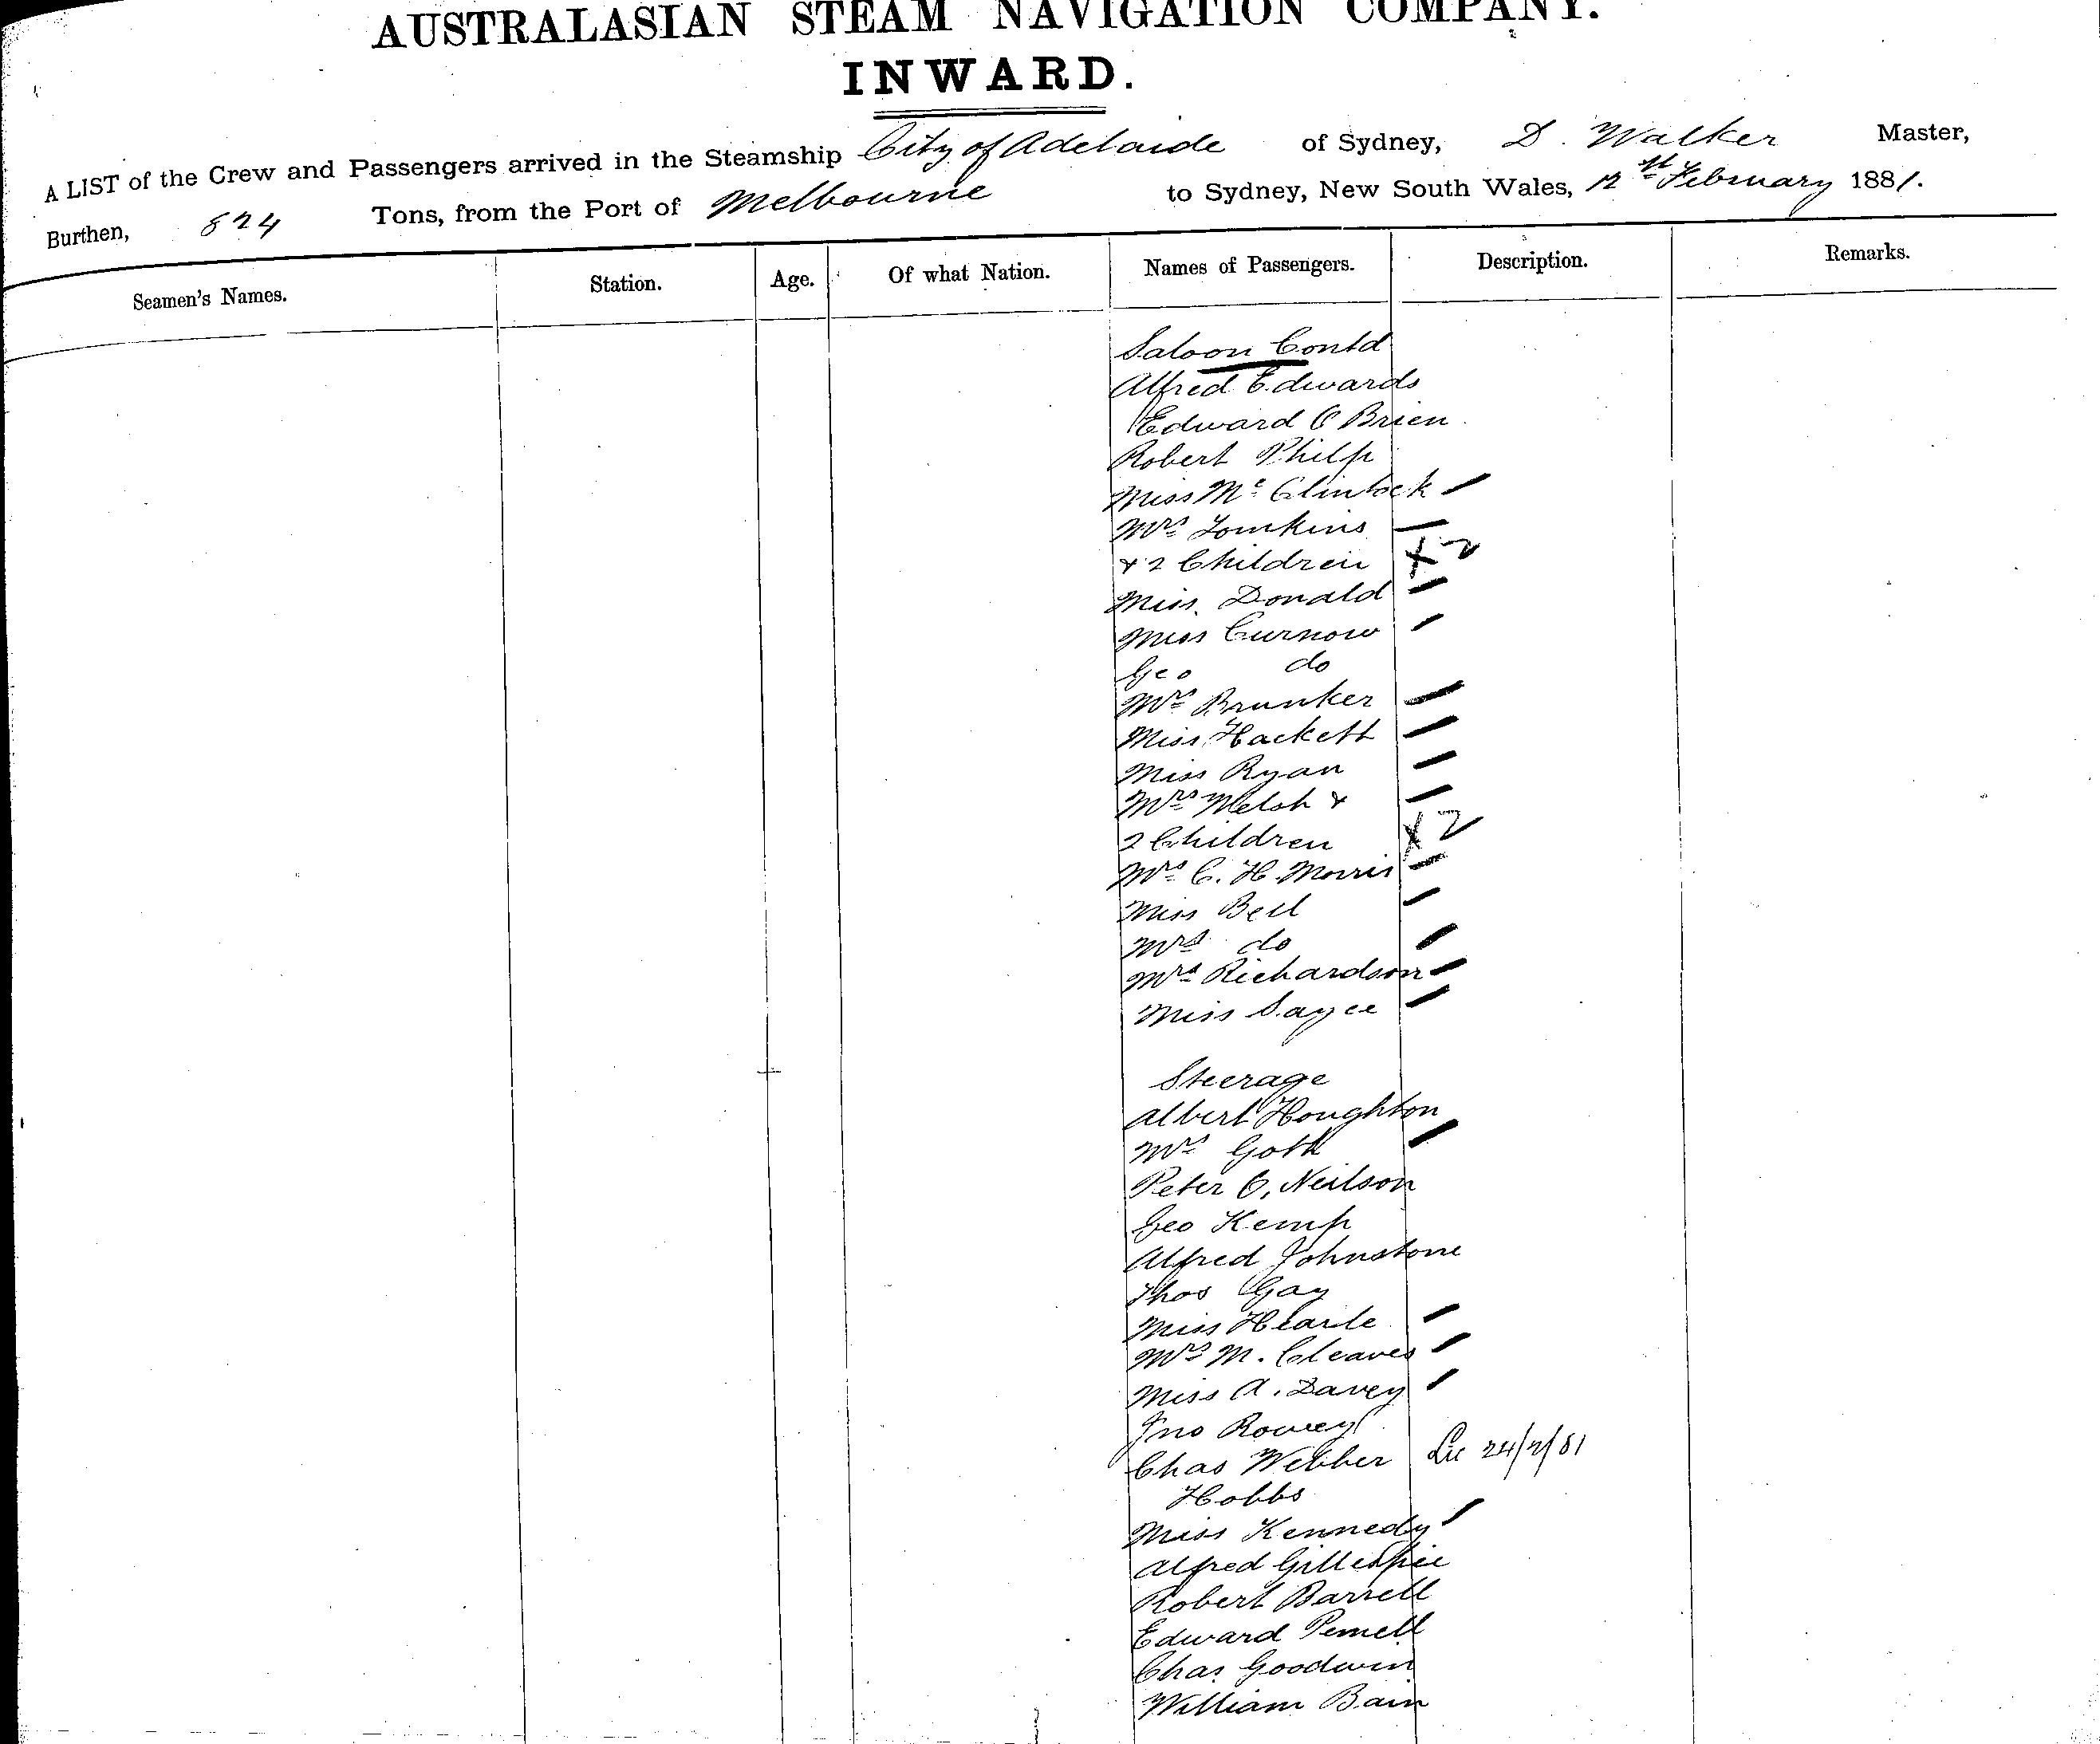 AUSTRALASIAN STEAM NAVIGATION COMPANY.
INWARD.
A LIST of the Crew and Passengers arrived in the Steamship City of Adelaide of Sydney, D. Walker Master,
Burthen, 824 Tons, from the Port of Melbourne to Sydney, New South Wales, 12th February 1881.
Seamen's Names. Station. Age. Of what Nation. Names of Passengers. Description. Remarks.
Saloon Contd
Alfred Edwards
Edward O Brien
Robert Philp
Miss Mc Clintock
Mrs Tomkins
+ 2 Children X 2
Miss Donald
Miss Curnow
Geo do
Mrs Brunker
Miss Hackett
Miss Ryan
Mrs Welsh +
2 Children X 2
Mrs C. H. Morris
Miss Bell
Mrs do
Mrs Richardson
Miss Sayce
Steerage
Albert Houghton
Mrs Goth
Peter O, Neilson
Geo Kemp
Alfred Johnstone
Thos Gay
Miss Hearle
Mrs M. Cleaves
Miss A. Davey
Jno Rowey
Chas Webber 24/2/81
Hobbs
Miss Kennedy
Alfred Gillespie
Robert Barrell
Edward Pemell
Chas Goodwin
William Bain